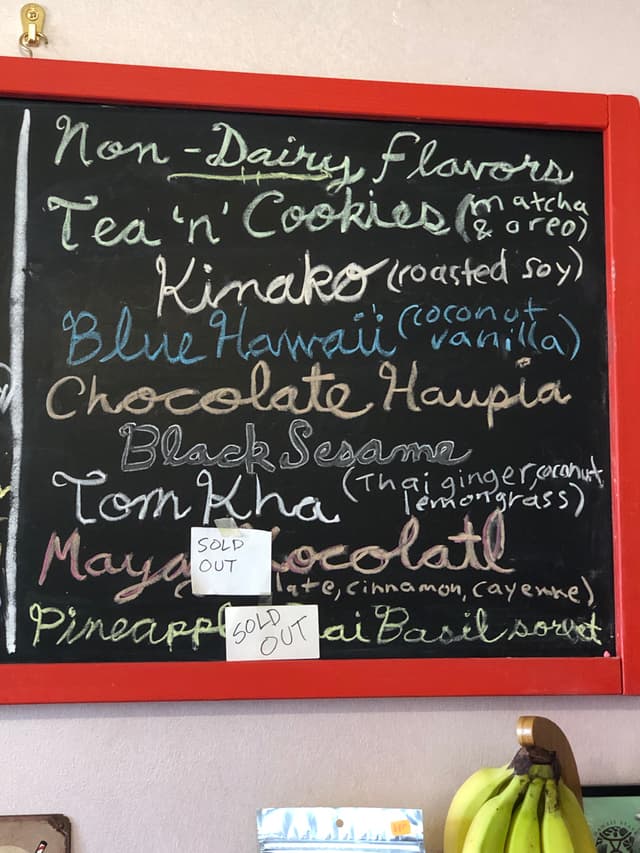 Non-Dairy flavors
Tea 'n' Cookies (matcha
& oreo)
Kinako (roasted soy)
Blue Hawaii (coconut
vanilla)
Chocolate Haupia
Black Sesame
Tom Kha (Thai ginger, coconut
lemongrass)
Maya ocolatl
SOLD
OUT
late, cinnamon, cayenne)
Pineappl ai Basil sorbet
SOLD
OUT